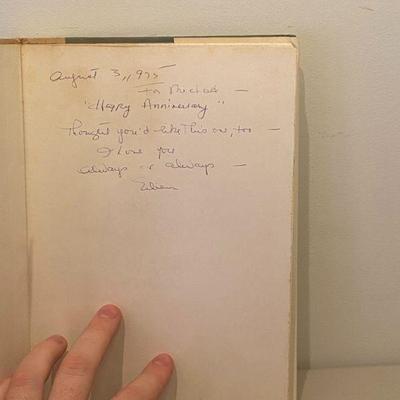 August 3, 1975
For Michael —
"Happy Anniversary"
Thought you'd like this one, too —
I Love you
always & always —